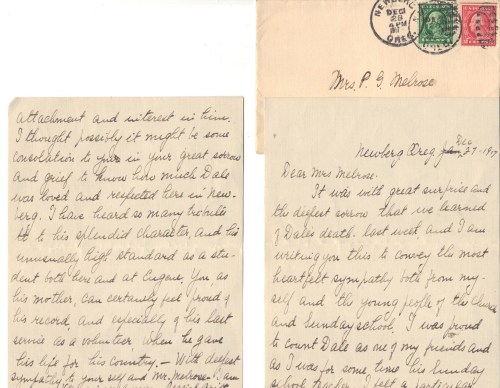 NEWBERG
DEC
28
4 PM
ORES.
Mrs. P. G. Melrose
Newberg Oreg Dec 27-1917
Dear Mrs Melrose-
It was with great surprise and
the deepest sorrow that we learned
of Dale's death last week and I am
writing you this to convey the most
heartfelt sympathy both from my-
self and the young people of the Church
and Sunday school. I was proud
to count Dale as one of my friends and
as I was for some time his Sunday
school teacher I felt a
attachment and interest in him.
I thought possibly it might be some
consolation to you in your great sorrow
and grief to know how much Dale
was loved and respected here in New-
berg. I have heard so many tributes
to his splendid character, and his
unusually high standard as a stu-
dent both here and at Eugene. You, as
his mother, can certainly feel proud of
his record, and especially of his last
service as a volunteer when he gave
his life for his country. - With deepest
sympathy to yourself and Mr. Melrose - I am